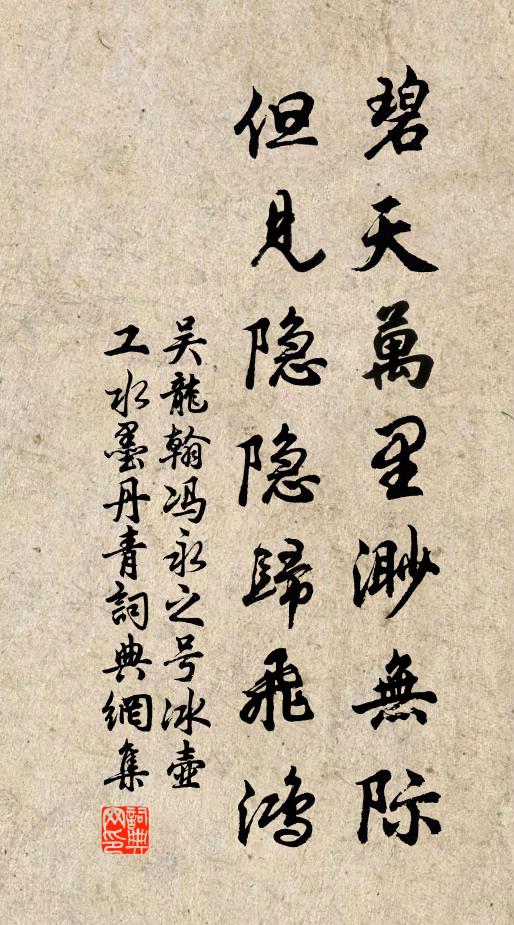 碧天萬里渺無际
但見隐隐歸飛鸿
吴龍翰冯永之号冰壷
工水墨丹青詞典網集
詞典网印